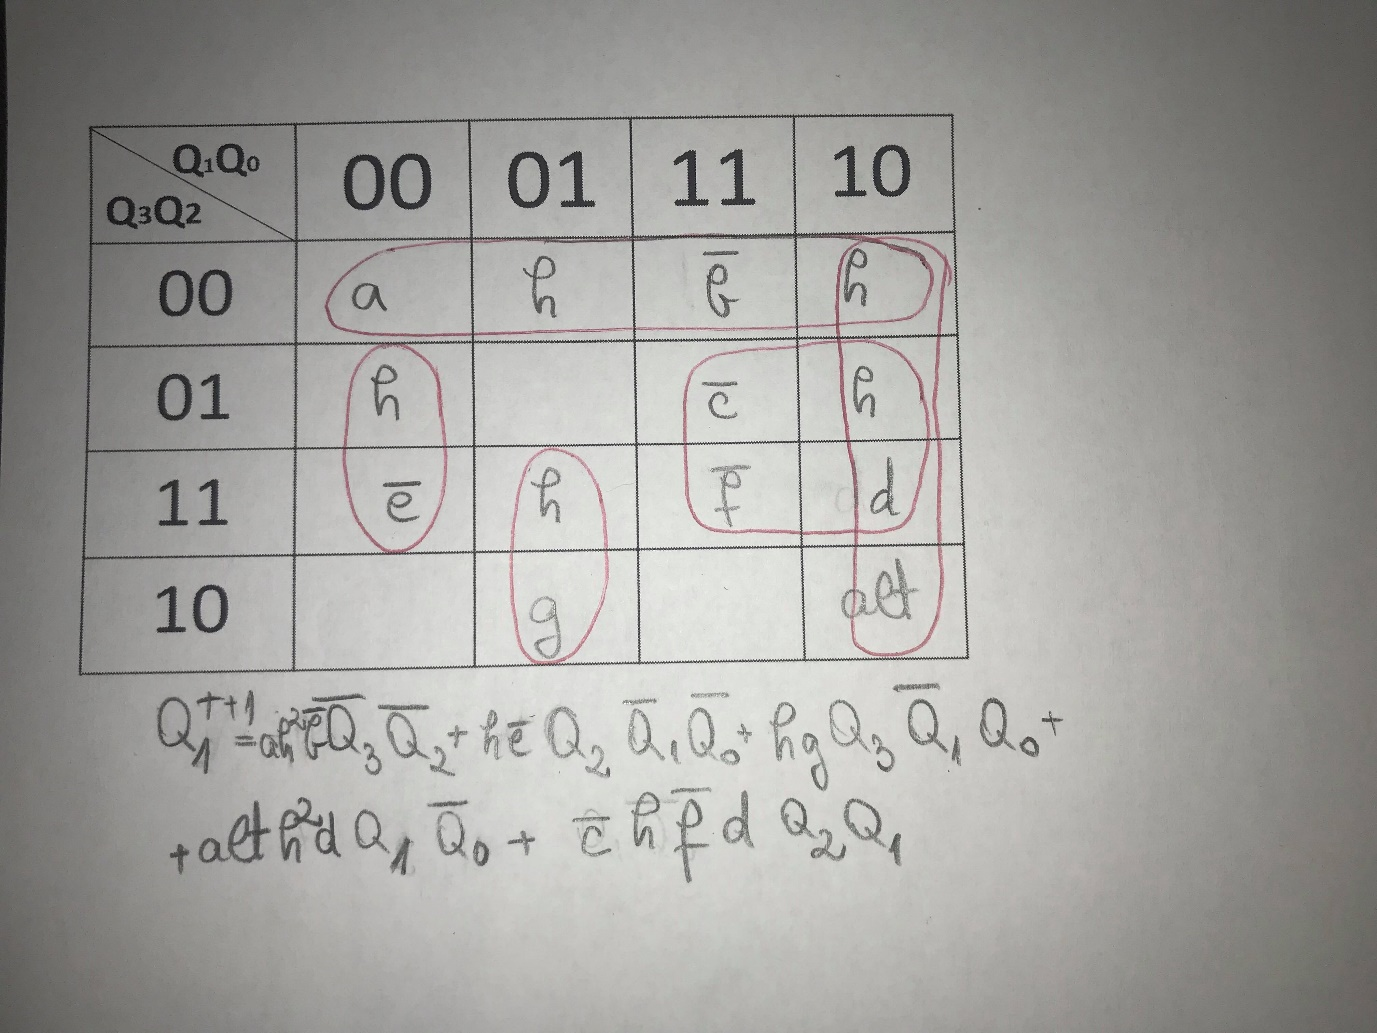 Q₁Q₀
Q₃Q₂ 00 01 11 10
00 a h b̅ h
01 h c̅ h
11 e̅ h f̅ d
10 g alt
Q₁ᵗ⁺¹=ah²b̅Q̅₃Q̅₂+he̅Q₂Q̅₁Q̅₀+hgQ₃Q̅₁Q₀+
+alth²dQ₁Q̅₀+c̅hf̅dQ₂Q₁